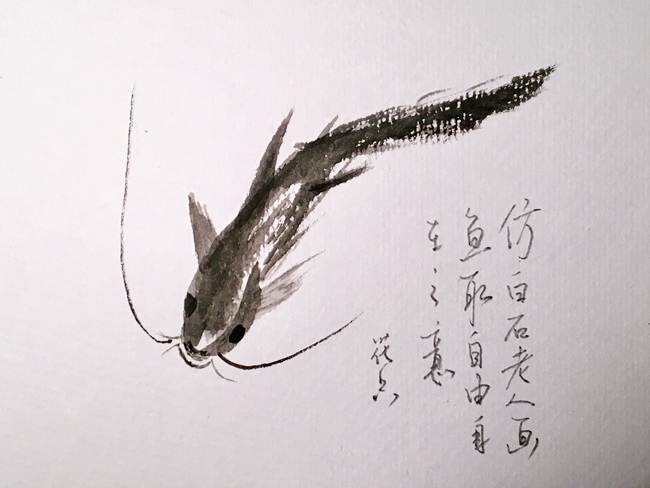 仿白石老人画
鱼取自由自
在之意